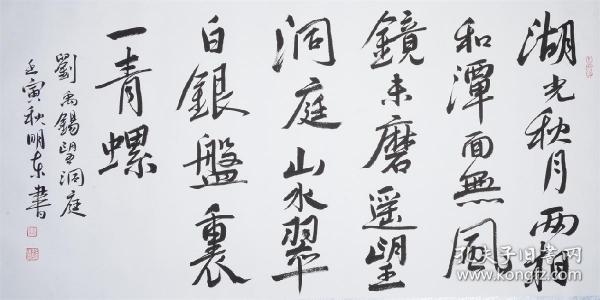 湖光秋月兩相
和潭面無風
鏡未磨遥望
洞庭山水翠
白銀盤裏
一青螺
劉禹錫望洞庭
壬寅秋明东書
孔夫子旧书网
www.kongfz.com